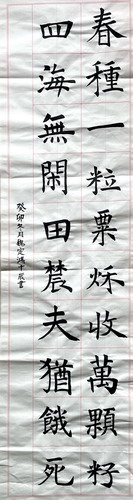 春種一粒粟秌收萬顆籽
四海無閑田農夫猶餓死
癸卯冬月